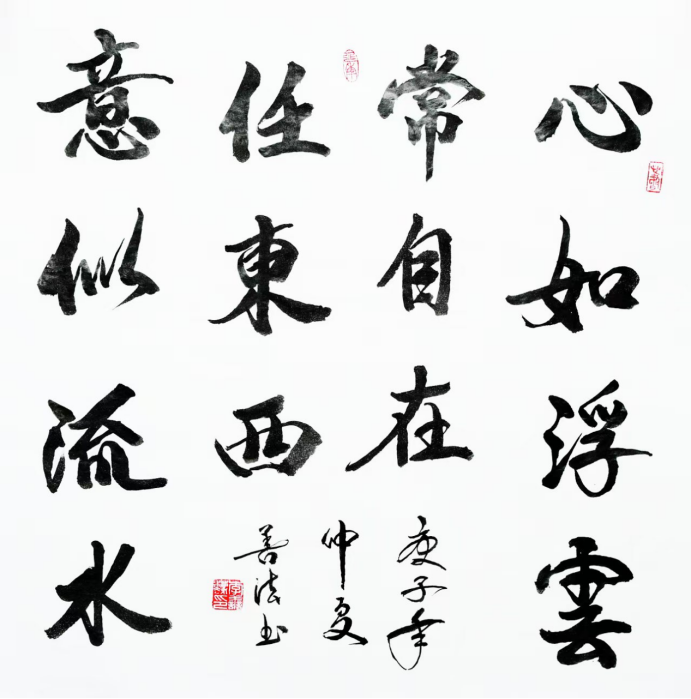 心如浮雲
常自在
意似流水
任東西
庚子年
仲夏
善法书